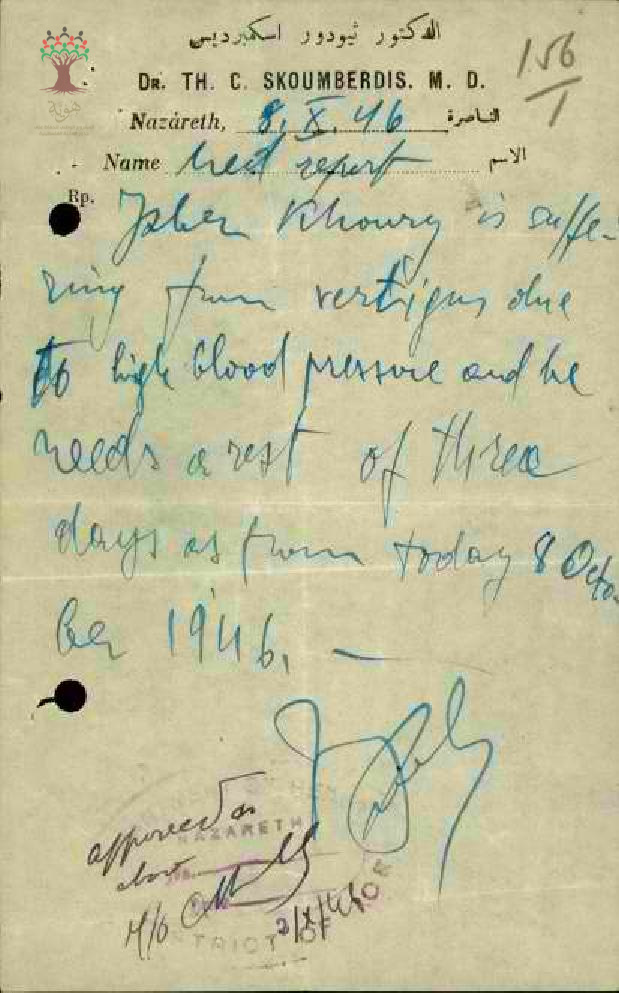 الدكتور ثيودور اسكمبرديس
DR. TH. C. SKOUMBERDIS. M. D.
156
1
Nazáreth, 8. X. 46 الناصرة
Name Med report الاسم
Rp.
Jaber Khoury is suffe-
ring from vertigus due
to high blood pressure and he
needs a rest of three
days as from today 8 Octo-
ber 1946. —
approved as
above
NAZARETH
M/O